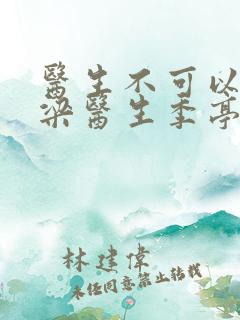 醫生不可以
梁醫生季亭
林建偉
未經同意禁止轉載